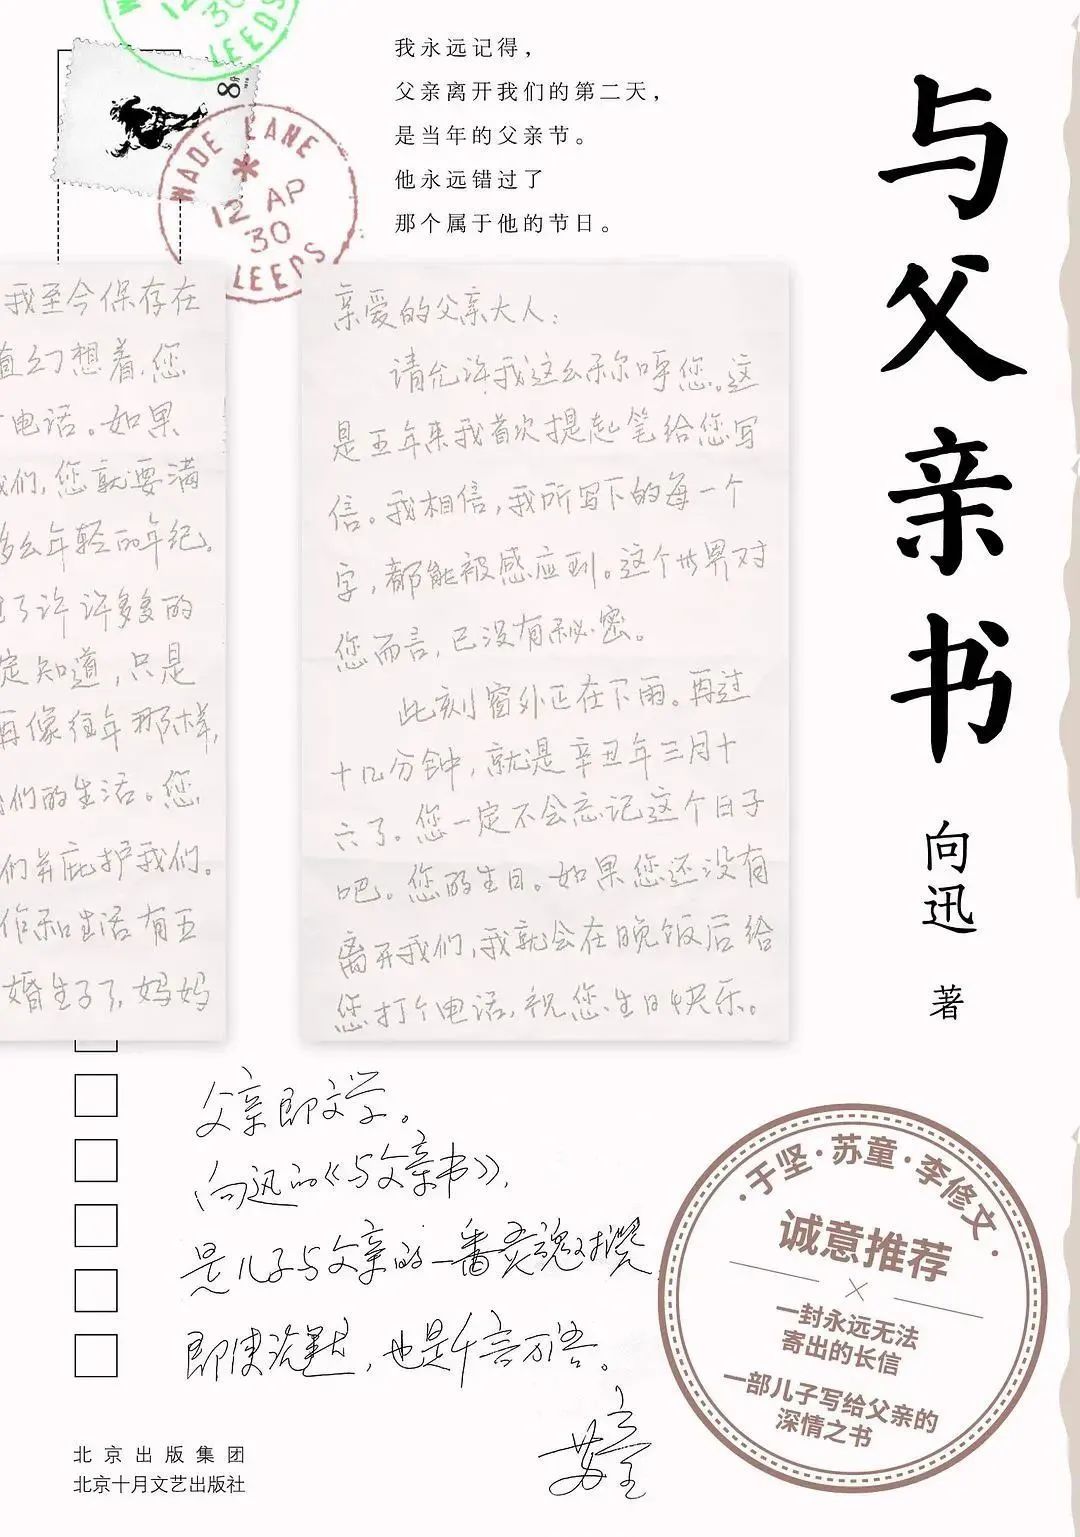 我永远记得，
父亲离开我们的第二天，
是当年的父亲节。
他永远错过了
那个属于他的节日。
与父亲书
向迅 著
8
12
30
LEEDS
WADE LANE
*
12 AP
30
LEEDS
我至今保存在
直幻想着，您
电话。如果
我们，您就要满
多么年轻的年纪。
了许许多多的
定知道，只是
再像往年那样，
我们的生活。您
们并庇护我们。
作和生活有五
婚生子了，妈妈
亲爱的父亲大人：
请允许我这么称呼您。这
是五年来我首次提起笔给您写
信。我相信，我所写下的每一个
字，都能被感应到。这个世界对
您而言，已没有秘密。
此刻窗外正在下雨。再过
十几分钟，就是辛丑年三月十
六了。您一定不会忘记这个日子
吧。您的生日。如果您还没有
离开我们，我就会在晚饭后给
您打个电话，祝您生日快乐。
父亲即文学。
向迅的《与父亲书》，
是儿子与父亲的一番灵魂对撰，
即使沉默，也是千言万语。
苏童
·于坚·苏童·李修文·
诚意推荐
一封永远无法
寄出的长信
一部儿子写给父亲的
深情之书
北京出版集团
北京十月文艺出版社